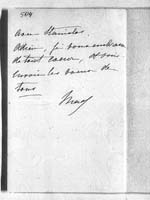 504
avec Stanislas.
Adieu, je vous embrasse
de tout coeur, et vous
envoie les voeux de
tous